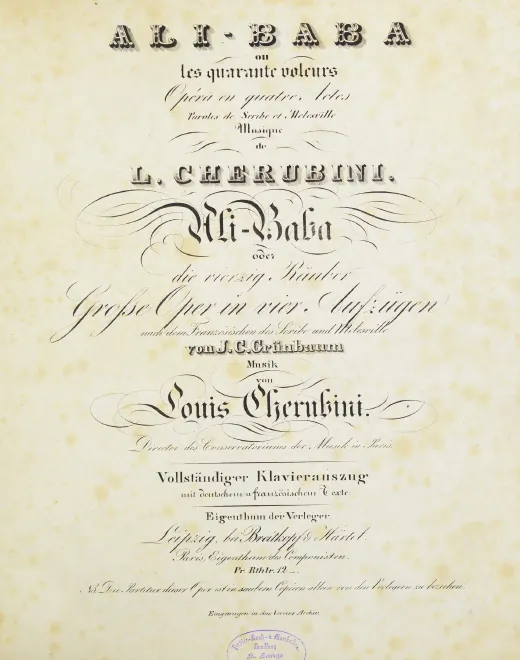 ALI-BABA
ou
les quarante voleurs
Opéra en quatre Actes
Paroles de Scribe et Melesville
Musique
de
L. CHERUBINI.
Ali-Baba
oder
die vierzig Räuber
Große Oper in vier Aufzügen
nach dem Französischen des Scribe und Melesville
von J. C. Grünbaum
Musik
von
Louis Cherubini.
Director des Conservatoriums der Musik in Paris.
Vollständiger Klavierauszug
mit deutschem u französischem Texte
Eigenthum der Verleger
Leipzig, bei Breitkopf & Härtel.
Paris, Eigenthum des Componisten.
Pr. Rthlr. 12 _
NB. Die Partitur dieser Oper ist in saubern Copien allein von den Verlegern zu beziehen.
Eingetragen in das Vereins Archiv.